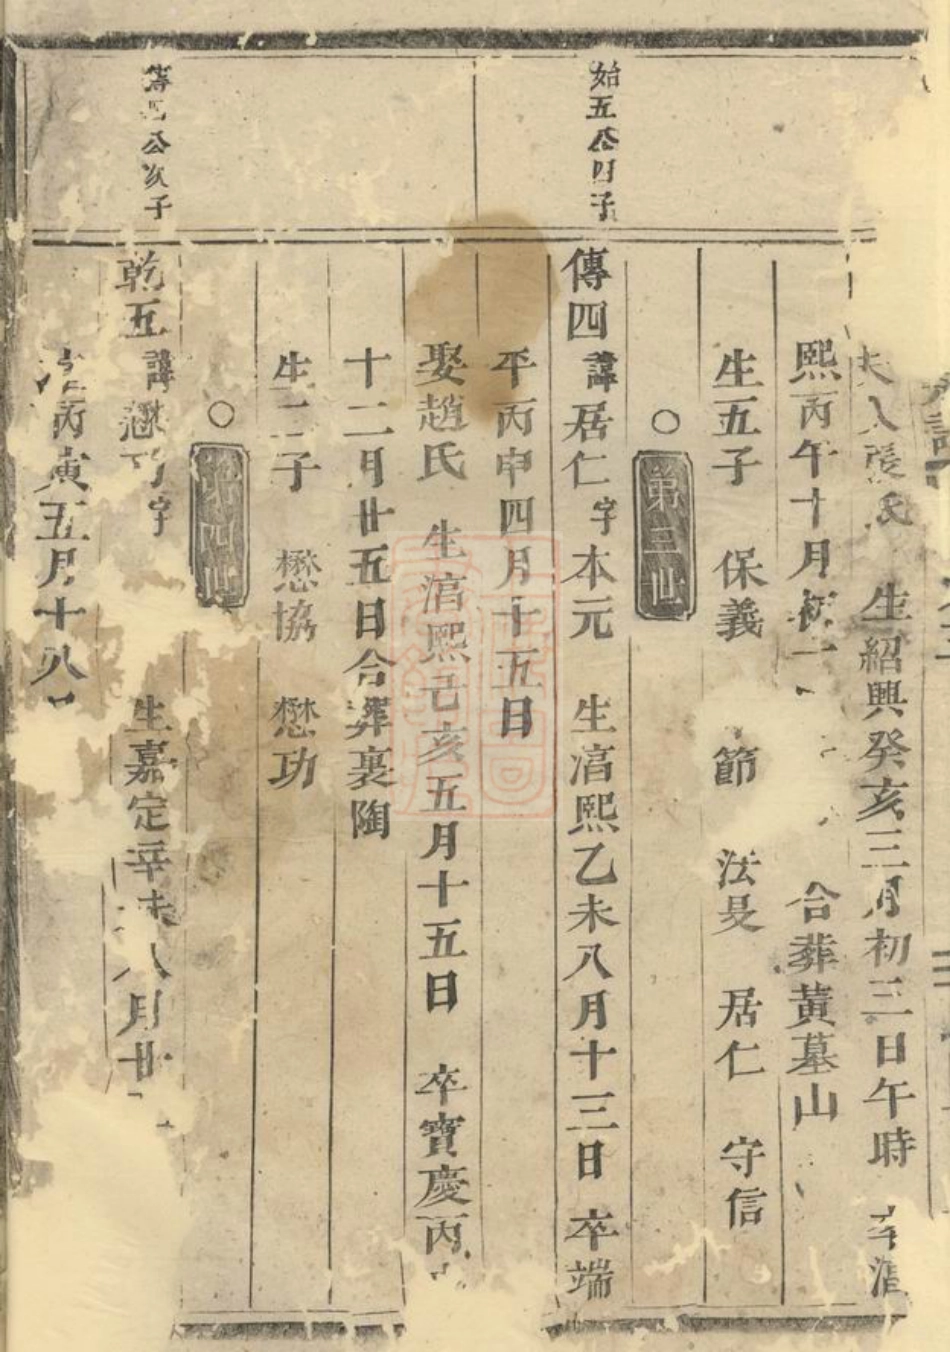 生紹興癸亥三月初三日午時
熙丙午十月初一 合葬黃墓山
生五子 保義 節 法旻 居仁 守信
○第三世
始五公四子
傳四諱居仁字本元 生湻熙乙未八月十三日 卒端
平丙申四月十五日
娶趙氏 生湻熙己亥五月十五日 卒寶慶丙
十二月廿五日合葬裏陶
生二子 懋協 懋功
○第四世
公次子
乾五諱懋功字 生嘉定辛未八月廿
丙寅五月十八